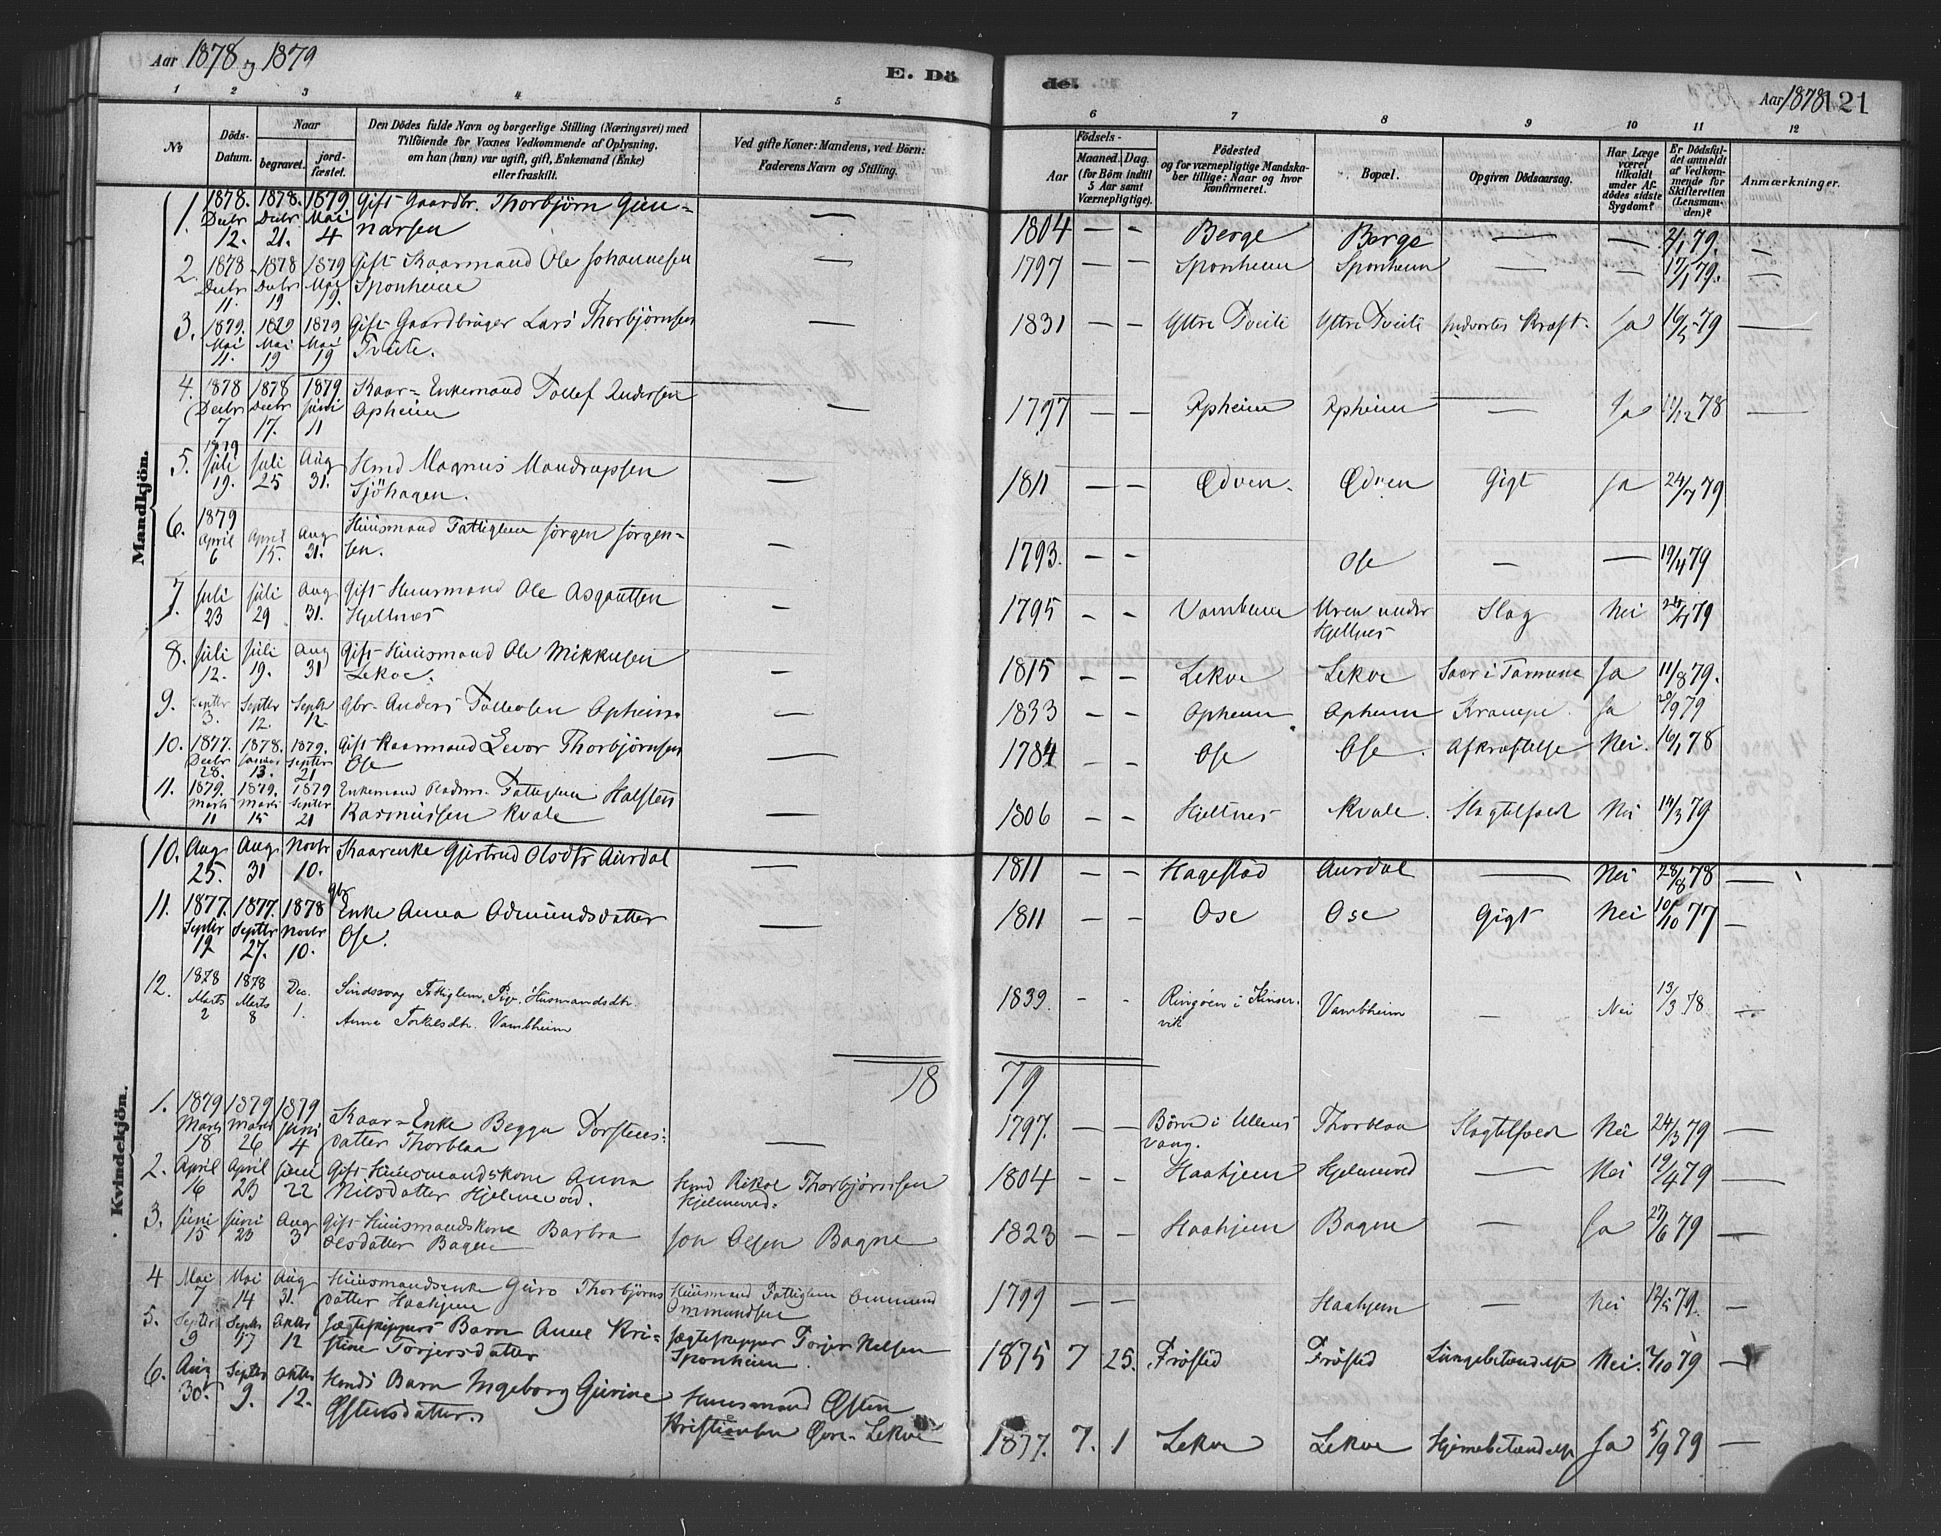 Aar 1878 og 1879
E. Dö
de.
Aar 1878
121
1 2 3 4 5 6 7 8 9 10 11 12
No
Döds-Datum.
Naar
begravet.
jord-fæstet.
Den Dödes fulde Navn og borgerlige Stilling (Næringsvei) med
Tilföiende for Voxnes Vedkommende af Oplysning,
om han (hun) var ugift, gift, Enkemand (Enke)
eller fraskilt.
Ved gifte Koner: Mandens, ved Börn:
Faderens Navn og Stilling.
Födsels-
Aar
Maaned. Dag.
(for Börn indtil
5 Aar samt
Værnepligtige).
Födested
og for værnepligtige Mandska-
ber tillige: Naar og hvor
konfirmeret.
Bopæl.
Opgiven Dödsaarsag.
Har Læge
været
tilkaldt
under Af-
dödes sidste
Sygdom?
Er Dödsfal-
det anmeldt
af Vedkom-
mende for
Skifteretten
(Lensman-
den)?
Anmærkninger.
Mandkjön.
1. 1878. Decbr 12. 1878. Decbr 21. 1879 Mai 4 Gift Gaardbr. Thorbjörn Gun-
narsen — 1804 — — Berge Berge — — 2/1 79. —
2. 1878 Decbr 11. 1878 Decbr 19 1879 Mai 19. Gift Kaarmand Ole Johannesen
Sponheim — 1797 — — Sponheim Sponheim — — 17/1 79. —
3. 1879. Mai 11. 1829 Mai 19 1879 Mai 19 Gift Gaardbruger Lars Thorbjörnsen
Tveite. — 1831 — — Yttre Tveite Yttre Tveite Indvortes Kræft. Ja 16/5 79 —
4. 1878 Decbr 7 1878 Decbr 17. 1879 Juni 11 Kaar-Enkemand Tollef Andersen
Opheim — 1797 — — Opheim Opheim — Ja 11/12 78 —
5. 1879 Juli 19. Juli 25 Aug 31. Hmd Magnus Mandrupsen
Sjöhagen. — 1811 — — Ædven. Ædven Gigt Ja 24/7 79
6. 1879 April 6 April 15. Aug 31. Huusmand Fattiglem Jörgen Jörgen-
sen. — 1793. — — Ose — — 19/4 79
7. Juli 23 Juli 29. Aug 31. Gift Huusmand Ole Asgautsen
Hjeltnes — 1795 — — Vambheim Uren under
Hjeltnes Slag Nei 79
8. Juli 12. Juli 19. Aug 31 Gift Huusmand Ole Mikkelsen
Lekve. — 1815 — — Lekve Lekve Saar i Tarmene Ja 11/8 79.
9. Septbr 3. Septbr 12. Septbr 12 Gbr. Anders Tollefsen Opheim. — 1833 — — Opheim Opheim Krampe. Ja 79
10. 1877. Decbr 28. 1878. Januar 13. 1879. Septbr 21 Gift Kaarmand Levor Thorbjörnsen
Ose — 1784 — — Ose Ose. Afkræftelse Nei. 16/1 78
11. 1879. Marts 11 1879. Marts 15 1879 Septbr 21 Enkemand Fattiglem Halsten
Rasmussen Kvale — 1806 — — Hjeltnes Kvale Slagtilfæld Nei 14/3 79
Kvindekjön.
10. Aug 25. Aug 31 Novbr 10. Kaarenke Gjertrud Olsdtr Aurdal — 1811 — — Hagestad Aurdal — Nei 28/8 78 —
11. 1877. Septbr 12 1877. Septbr 27. 1878 Novbr 10. gbr Enke Anna Odmundsdatter
Ose. — 1811 — — Ose Ose Gigt Nei 10/10 77 —
12. 1878 Marts 2 1878 Marts 8 Dec. 1. Sindssvag Fattiglem, Pige, Husmandsdtr
Anna Torkilsdtr. Vambheim 1839. - - Ringöen i Kinser-
vik Vambheim — Nei 13/3 78. —
18 79
1. 1879 Marts 18 1879 Marts 26 1879 Juni 4 Kaar-Enke Begga Torstens-
datter Thorblaa — 1797. — — Börve i Ullens-
vang. Thorblaa Slagtilfæld Nei 24/3 79 —
2. April 16 April 23 Juni 22 Gift Huusmandskone Anna
Nilsdatter Hjelmevold. Hmd Rikol Thorbjörnsen
Hjelmevold. 1804 — — Haahjem Hjelmevold — Nei 19/4 79 —
3. Juni 15 Juni 23 Aug 3 Gift Huusmandskone Barbra
Olsdatter Bagne Jon Olsen Bagne 1823 — — Haahjem Bagne — Ja 27/6 79 —
4 Mai 7 Mai 14 Aug 31. Huusmandsenke Guro Thorbjörns-
datter Haahjem Huusmand Fattiglem Ommund
Ommundsen 1799 — — Haahjem — Nei 12/5 79. —
5. Septbr 9 Septbr 17 Oktbr 12 Jægteskippers Barn Anne Kri-
stine Torjersdatter Jægteskipper Torjer Nelsen
Sponheim. 1875 7 25. Fröstad Fröstad Lungebetændelse Nei. 2/10 79 —
6. Aug 30. Septbr 9. Oktbr 12. Hmds Barn Ingeborg Gurine
Östensdatter. Huusmand Östen
Kristiansen Lekve 1877. 7. 1 Lekve Lekve Hjernebetændelse Ja 5/9 79 —